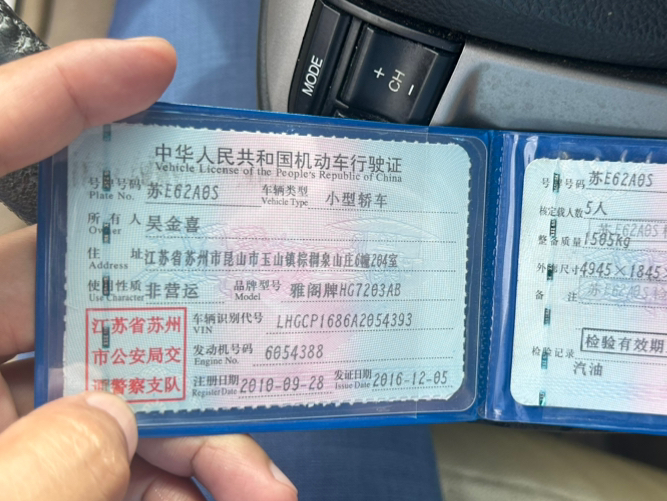 MODE
+
CH
-
中华人民共和国机动车行驶证
Vehicle License of the People's Republic of China
号牌号码 苏E62A0S 车辆类型 小型轿车
Plate No. Vehicle Type
所有人 吴金喜
Owner
住址 江苏省苏州市昆山市玉山镇棕榈泉山庄6幢204室
Address
使用性质 非营运 品牌型号 雅阁牌HG7203AB
Use Character Model
江苏省苏州
市公安局交
警察支队
车辆识别代号 LHGCP1686A2054393
VIN
发动机号码 6054388
Engine No.
注册日期 2010-09-28 发证日期 2016-12-05
Register Date Issue Date
号牌号码 苏E62A0S
核定载人数 5人
整备质量 1505kg
外廓尺寸 4945×1845
备注
检验有效期
检验记录
汽油